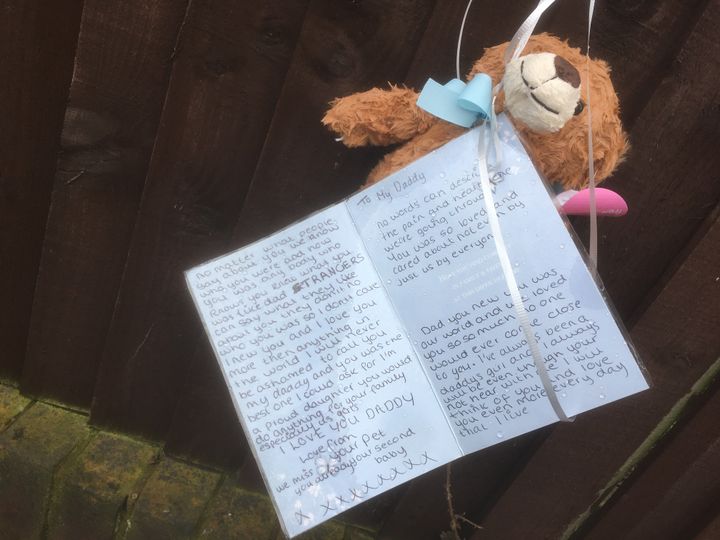 no matter what people
say about you we know
who you were and now
you was any body who
knows you knew what you
was like dad STRANGERS
can say what they like
about you they don't no
who you was so I don't care
new you and I love you
more then anything in
the world I will never
be ashamed to call you
my daddy and you was the
best one I could ask for I'm
a proud daughter you would
do anything for your family
especially us girls
I LOVE YOU DADDY
Love from
your pet
we miss you
your second
baby
x x x x x x x x x
To My Daddy
no words can describe
the pain and heart
we're going through
You was so loved and
cared about not even by
just us by everyone
Dad you new you was
our world and we loved
you so so much no one
would ever come close
to you. I've always been a
daddys girl and I always
will be even though your
not hear with me I will
think of you and love
you even more every day
that I live